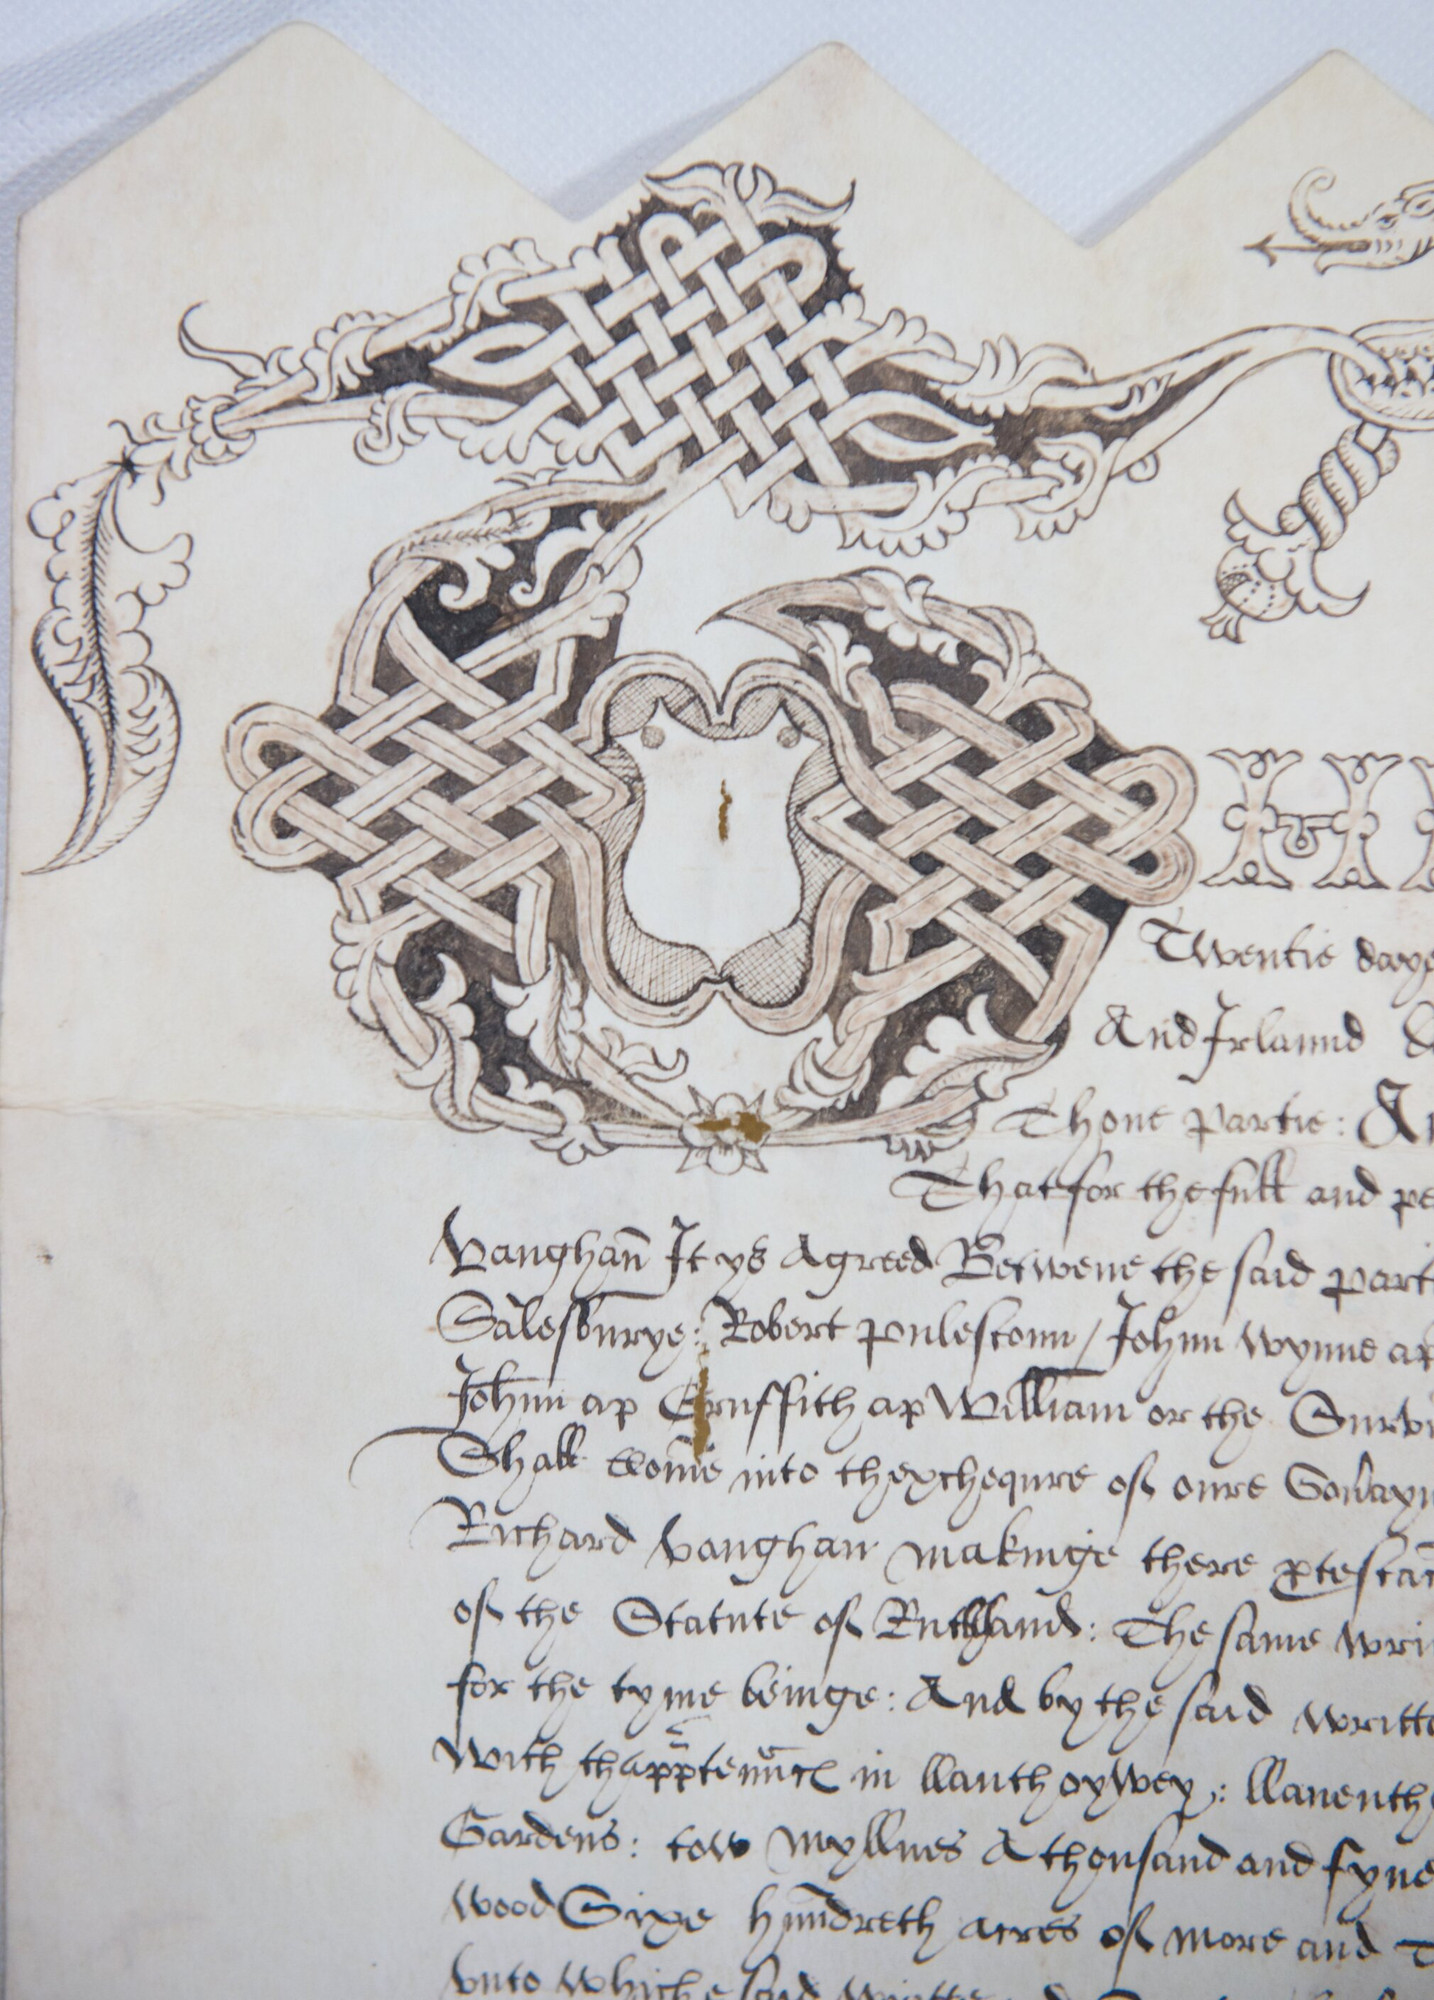 THI
Twentie daye
And Irlannd
Thone partie: An
That for the full and pe
Vaughan̄ It ys Agreed Betwene the said parti
Salesburye: Robert pulestonn / Johnn wynne ap
Johnn ap Gruffith ap William or the Survi
Shall come into thexchequre of oure Sov̄ayn
Richard Vaughan makinge there ꝓtestac̄
of the Statute of Ruthland: The same wri
for the tyme beinge: And by the said writte
With thapp̄ten̄nc̄ in llanthoywey: llanenth
Gardens: tow myllnes A thousand and fyue
wood Sixe hundreth acres of more and T
vnto Whiche said writte